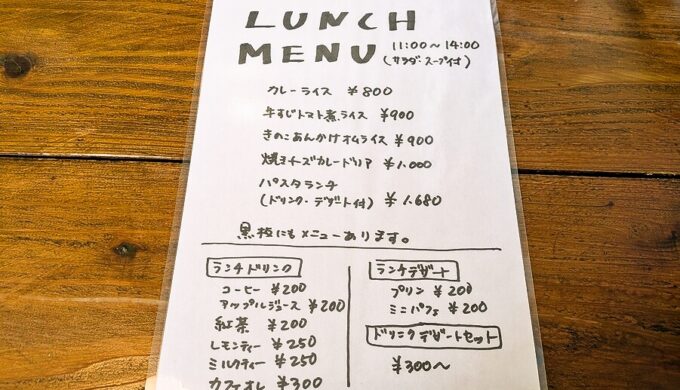 LUNCH
MENU 11:00~14:00
(サラダ・スープ付)
カレーライス ¥800
牛すじトマト煮ライス ¥900
きのこあんかけオムライス ¥900
焼チーズカレードリア ¥1.000
パスタランチ
(ドリンク・デザート付) ¥1.680
黒板にもメニューあります。
ランチドリンク
コーヒー ¥200
アップルジュース ¥200
紅茶 ¥200
レモンティー ¥250
ミルクティー ¥250
カフェオレ ¥300
ランチデザート
プリン ¥200
ミニパフェ ¥200
ドリンクデザートセット
¥300~